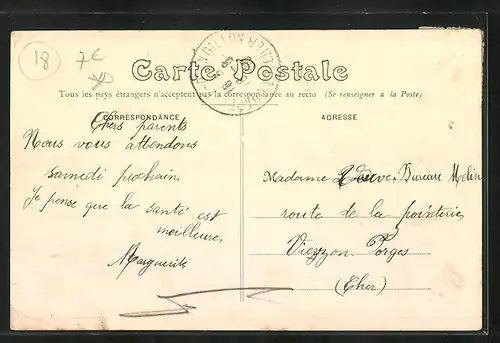 18
7€
Carte Postale
Tous les pays étrangers n'acceptent pas la correspondance au recto (Se renseigner a la Poste)
CORRESPONDANCE
Chers parents
Nous vous attendons
samedi prochain
Je pense que la santé est
meilleure
Marguerite
ADRESSE
Madame Bureau
route de la
Vierzon-Forges
(Cher)